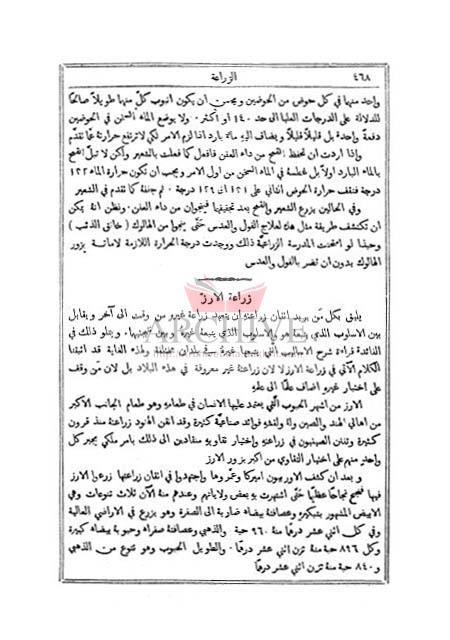 ٤٦٨ الزراعة
واحد منها في كل حوض من الحوضين ويجب ان يكون انبوب كلّ منها طويلاً صالحًا
للدلالة على الدرجات العليا الى حد ١٤٠ او اكثر ولا يوضع الماء السخن في الحوض
دفعة واحدة بل قليلاً قليلاً ويضاف اليه ماء بارد اذا لزم الامر لكي لا ترتفع حرارته عمّا تقدّم
واذا اردت ان تحفظ القمح من داء العفن فافعل كما فعلت بالشعير ولكن لا تبلّ القمح
بالماء البارد اولاً بل غطسه في الماء السخن من اول الامر ويجب ان تكون حرارة الماء ١٢٢
درجة فتقف حرارة الحوض الثاني على ١٣١ الى ١٢٩ درجة . ثم جففه كما تقدم في الشعير
وفي الحالين يزرع الشعير والقمح بعد تجفيفها فينجوان من داء العفن . ونظن انه يمكن
ان تكتشف طريقة مثل هذه لعلاج الفول والعدس حتّى ينجوا من الهالوك ( خانق الذئب )
وحبذا لو امتحنت المدرسة الزراعيّة ذلك ووجدت درجة الحرارة اللازمة لاماتة بزور
الهالوك بدون ان تضر بالفول والعدس
زراعة الارز
يليق بكل من يريد اتقان زراعته ان يتعهد زراعة غيره من وقت الى آخر ويقابل
بين الاسلوب الذي يتبعه هو والاسلوب الذي يتبعه غيره ويرى نتيجتها . ويتلو ذلك في
الفائدة قراءة شرح الاساليب التي يتبعها غيره في بلدان مختلفة ولهذه الغاية قد اثبتنا
الكلام الآتي في زراعة الارز لا لان زراعته غير معروفة في هذه البلاد بل لان من وقف
على اختبار غيره اضاف علمًا الى علمه
ARCHIVE
الارز من اشهر الحبوب التي يعتمد عليها الانسان في طعامه وهو طعام الجانب الاكبر
من اهالي الهند والصين ولهُ فوائد صناعيّة كثيرة وقد اتقن الهنود زراعتهُ منذ قرون
كثيرة وتفنن الصينيون في زراعته واختيار تقاويه منقادين الى ذلك بامر ملكي يجبر كل
واحد منهم على اختيار التقاوي من اكبر بزور الارز
و بعد ان كشف الاوربيون اميركا وعمّروها واجتهدوا في اتقان زراعتها زرعوا الارز
فيها فنجح نجاحًا عظيمًا حتّى اشتهرت به بعض ولاياتهم وعندهم منه الآن ثلاث تنوعات وهي
الابيض المشهور بتبكيره وعصافته بيضاه ضاربة الى الصفرة وهو يزرع في الاراضي العالية
وفي كل اثني عشر درهمًا منهُ ٩٦٠ حبة والذهبي وعصافتهُ صفراه وحبوبهُ بيضاه كبيرة
وكل ٨٩٦ حبة منهُ تزن اثني عشر درهمًا . والطويل الحبوب وهو تنوع من الذهبي
و ٨٤٠ حبة منهُ تزن اثني عشر درهمًا